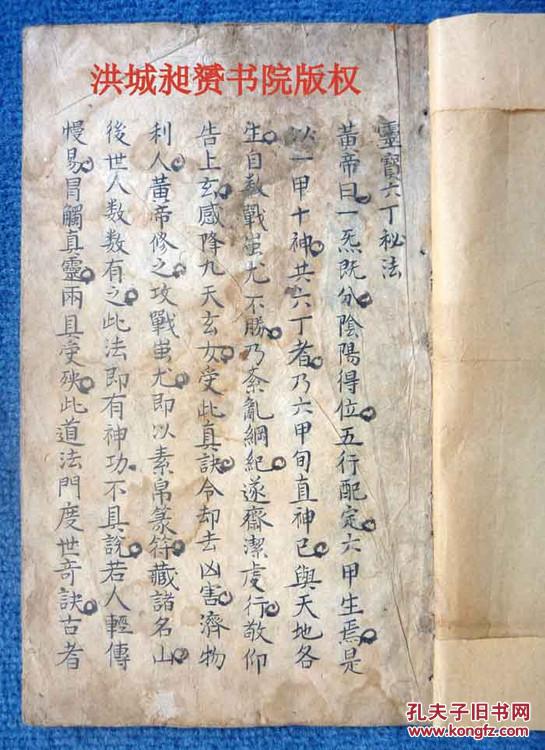 洪城昶赟书院版权
靈寶六丁秘法
黃帝曰一炁既分陰陽得位五行配定六甲生焉是
以一甲十神共六丁者乃六甲旬直神已與天地各
生自敎戰蚩尤不勝乃紊亂綱紀遂齋潔虔行敬仰
告上玄感降九天玄女受此真訣令却去凶害濟物
利人黃帝修之攻戰蚩尤即以素帛篆符藏諸名山
後世人数数有之此法即有神功不具說若人輕傳
慢易冐觸真靈兩具受殃此道法門度世奇訣古者
孔夫子旧书网
www.kongfz.com